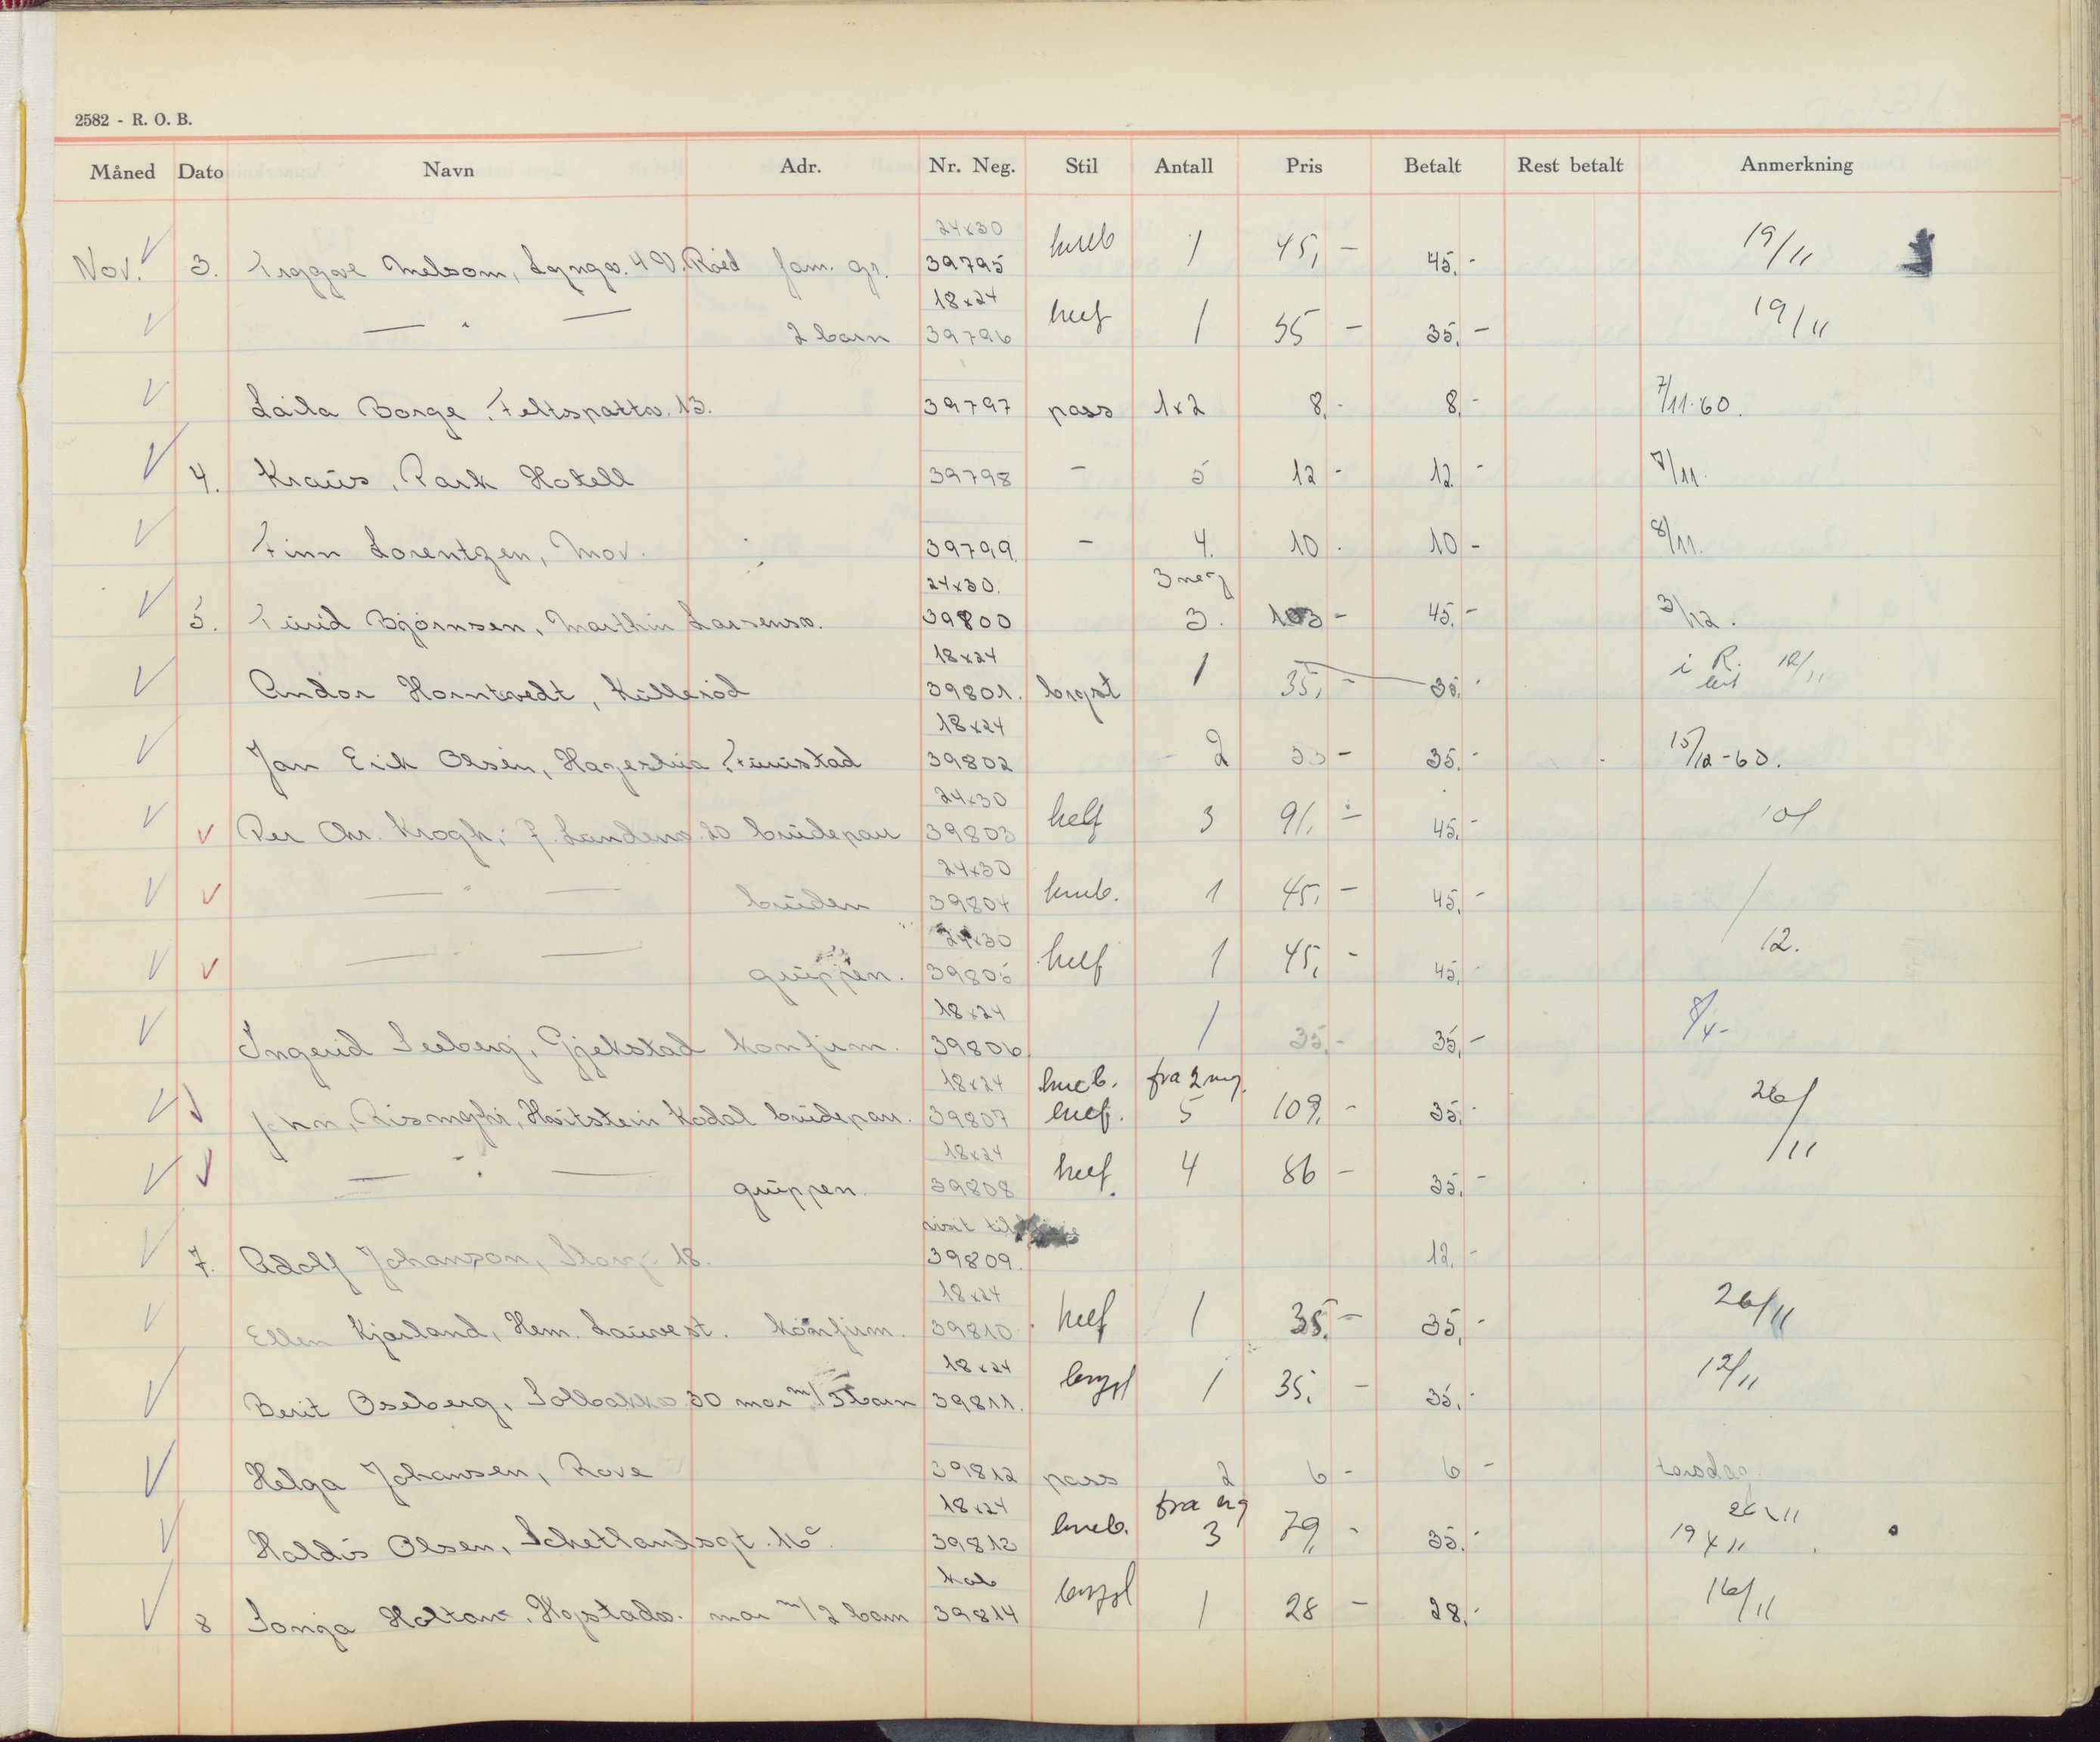 2582 - R. O. B.
Måned Dato Navn Adr. Nr. Neg. Stil Antall Pris Betalt Rest betalt Anmerkning
24x30
Nov. 3. Tryggve Melsom, Lyngv. 4 V. Råed fam. gr. 39795 1 45,- 45,- 19/11
18x24
— " — 2 barn 39796 1 35 - 35,- 19/11
Laila Borge, Feltspattv. 13. 39797 pass 1x2 8,- 8,- 7/11-60.
4. Kraus, Park Hotell 39798 - 5 12 - 12 - 7/11.
Finn Lorentzen, Mov. 39799 - 4. 10 - 10 - 8/11.
24x30. 3 neg
5. Turid Bjørnsen, Marthin Larsensv. 39800 3. 103 - 45,- 3/12.
18x24
Andor Horntvedt, Kullerød 39801. bryst 1 35,- 35,- i R. 12/11
18x24
Jan Erik Olsen, Furustad 39802 2 35 - 35,- 15/12-60.
24x30
Per Chr. Krogh, 20 brudepar 39803 helf 3 91,- 45,- 10/
24x30
— " — bruden 39804 kneb. 1 45,- 45,-
24x30 12.
— " — gruppen. 39805 helf 1 45,- 45,-
18x24
Ingerid Seeberg, Gjekstad konfirm. 39806 1 35,- 35,-
18x24 kneb. fra 2 neg.
Kodal brudepar. 39807 helf. 5 109,- 35,- 26/11
18x24
— " — gruppen 39808 helf. 4 86 - 35,-
visit til
7. Adolf Johanson, Storg. 18. 39809. 12,-
18x24
Ellen Kjærland, Hem. Lauvest. konfirm. 39810 helf 1 35,- 35,- 26/11
18x24
Berit Oseberg, Solbakkv. 30 mor m/3 barn 39811. bryst 1 35,- 35,- 12/11
Helga Johansen, Rove 39812 pass 2 6 - 6 - torsdag.
18x24 fra neg 26/11
Haldis Olsen, Schetlandsgt. 16c. 39813 kneb. 3 79,- 35,- 19/11
kab
8 Sonja Holtan, Hystadv. mor m/2 barn 39814 bryst 1 28 - 28,- 16/11